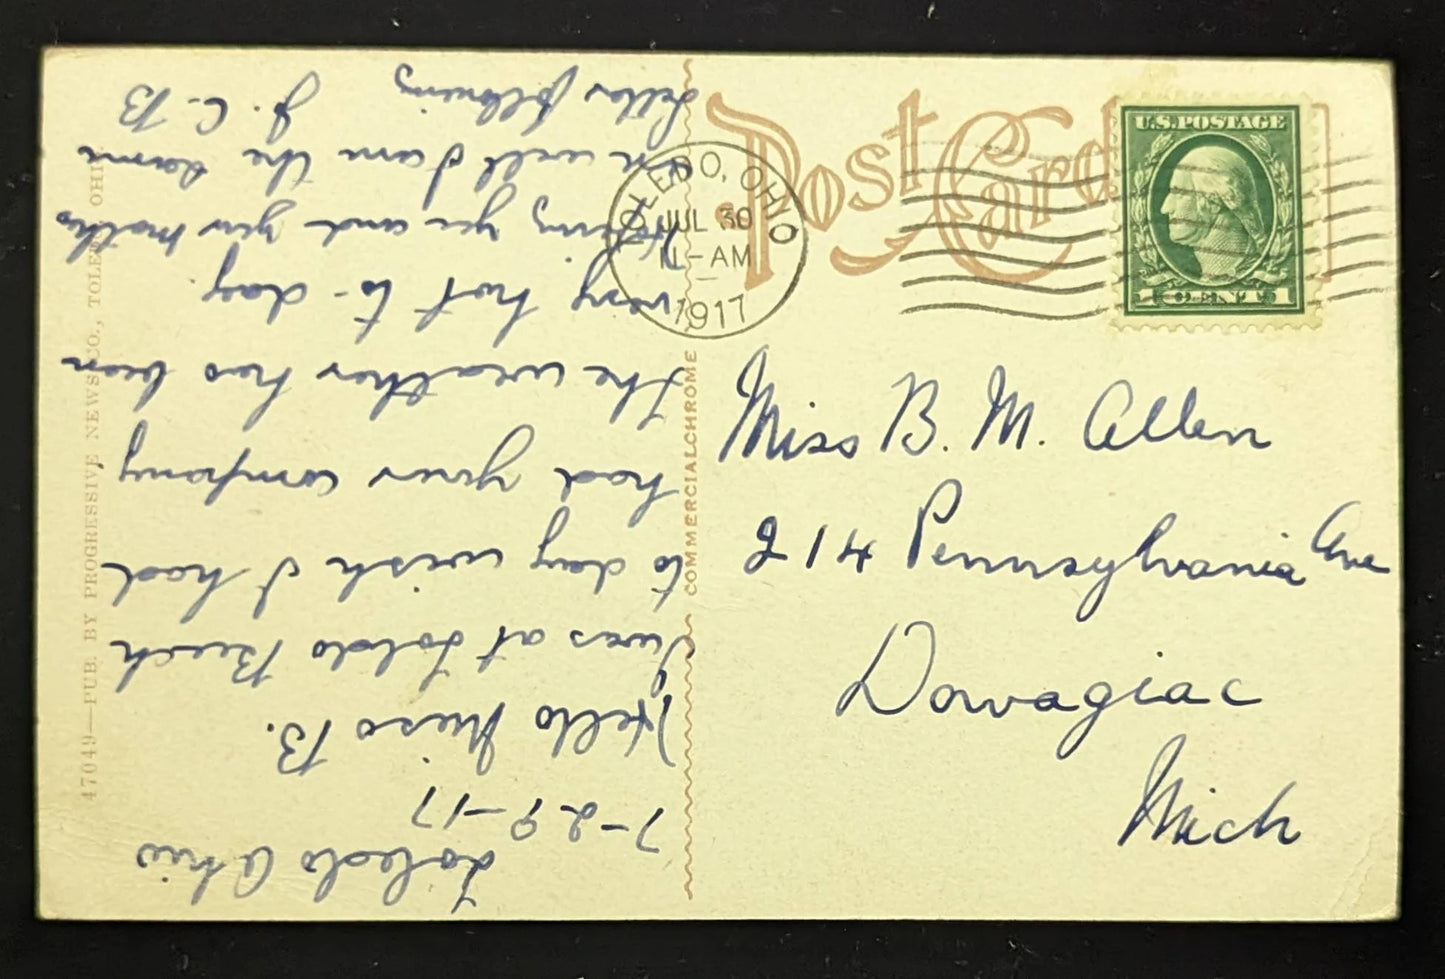 Post Card
TOLEDO, OHIO
JUL 30
11-AM
1917
U.S. POSTAGE
1 CENT 1
Miss B. M. Allen
214 Pennsylvania Ave
Dowagiac
Mich
COMMERCIALCHROME
47049—PUB. BY PROGRESSIVE NEWS CO., TOLEDO, OHIO
Toledo Ohio
7-29-17
Hello Miss B.
I was at Toledo Beach
to day wish I had
had your company
the weather has been
very hot to-day
Hoping you and your mother
are well I am the same
Letter following
J. C. B